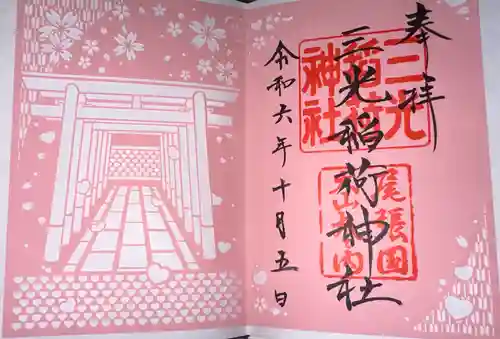 奉拝
三光稲荷神社
令和六年十月五日
三光
稲荷
神社
尾張国
犬山城内